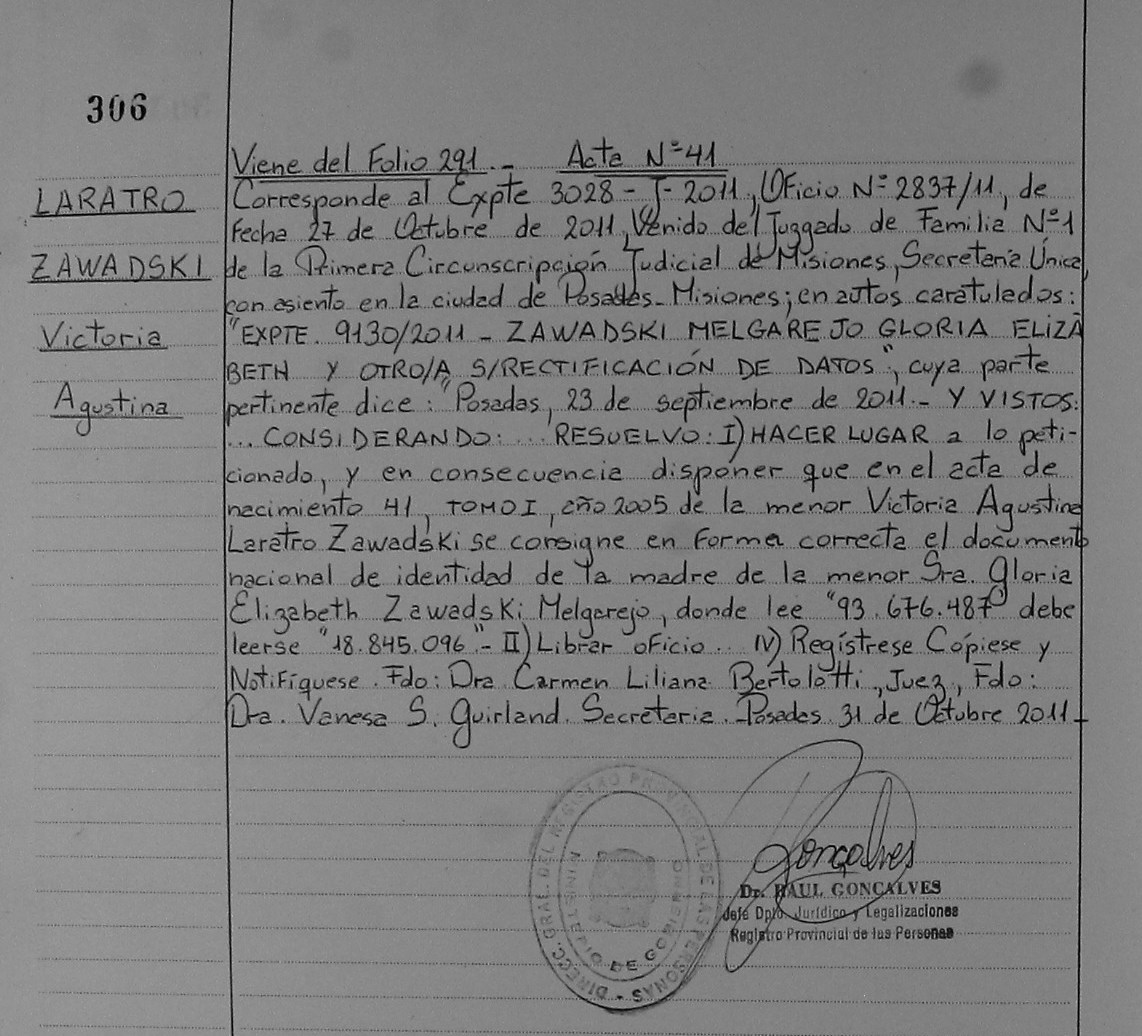 306
LARATRO
ZAWADSKI
Victoria
Agustina
Viene del Folio 291.- Acta Nº 41
Corresponde al Expte 3028-J-2011, Oficio Nº 2837/11, de
fecha 27 de Octubre de 2011, Venido del Juzgado de Familia Nº1
de la Primera Circunscripción Judicial de Misiones, Secretaria Única,
con asiento en la ciudad de Posadas-Misiones; en autos caratulados:
"EXPTE. 9130/2011 - ZAWADSKI MELGAREJO GLORIA ELIZA
BETH Y OTRO/A S/RECTIFICACIÓN DE DATOS", cuya parte
pertinente dice: "Posadas, 23 de septiembre de 2011.- Y VISTOS:
... CONSIDERANDO: ... RESUELVO: I) HACER LUGAR a lo peti-
cionado, y en consecuencia disponer que en el acta de
nacimiento 41, TOMO I, año 2005 de la menor Victoria Agustina
Laratro Zawadski se consigne en forma correcta el documento
nacional de identidad de la madre de la menor Sra. Gloria
Elizabeth Zawadski Melgarejo, donde lee "93.676.487" debe
leerse "18.845.096".- II) Librar oficio... IV) Regístrese Cópiese y
Notifíquese. Fdo: Dra Carmen Liliana Bertolotti, Juez, Fdo:
Dra. Vanesa S. Guirland. Secretaria. Posadas 31 de Octubre 2011-
DIRECC. GRAL. DEL REGISTRO PROVINCIAL DE LAS PERSONAS -
MINISTERIO DE GOBIERNO
Gonçalves
Dr. RAUL GONCALVES
Jefe Dpto. Jurídico y Legalizaciones
Registro Provincial de las Personas